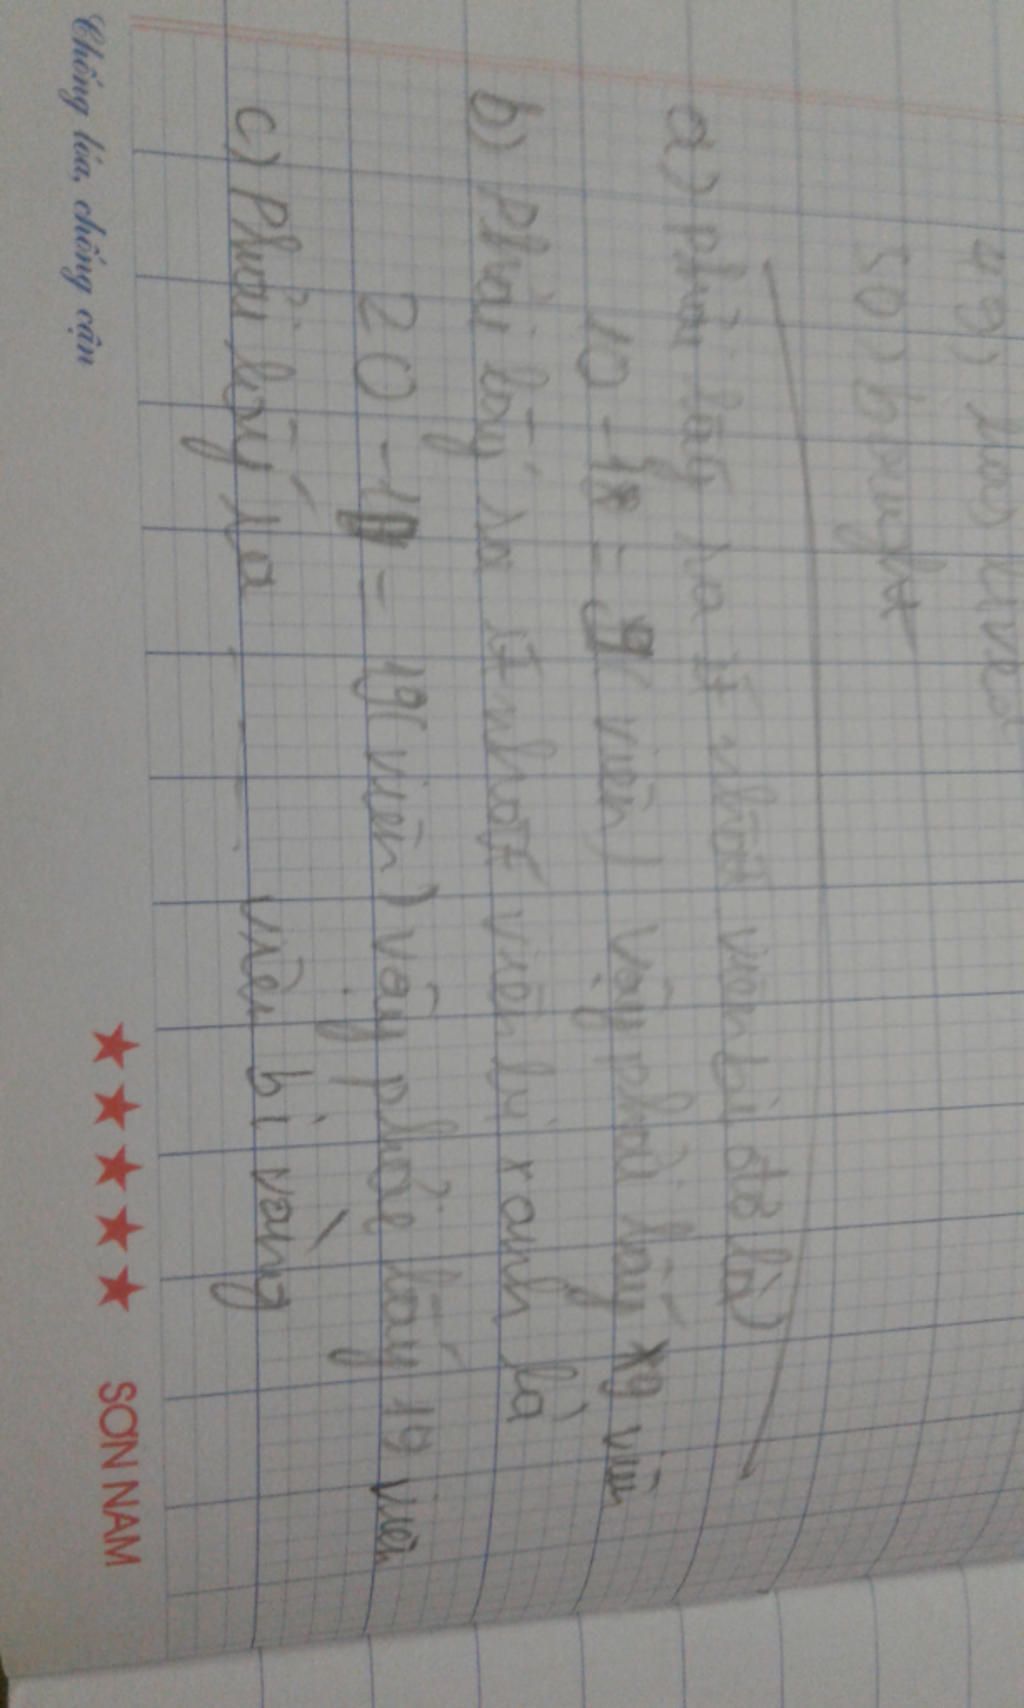 49) has lived
50) bought
a) phải lấy ra ít nhất viên bi đỏ là)
10 - 1 = 9( viên) vậy phải lấy 9 viên
b) Phải lấy ra ít nhất viên bi xanh là
20 - 1 = 19( viên) vậy phải lấy 19 viên
c) Phải lấy ra - - - . viên bi vàng
Chống lóa, chống cận
SƠN NAM